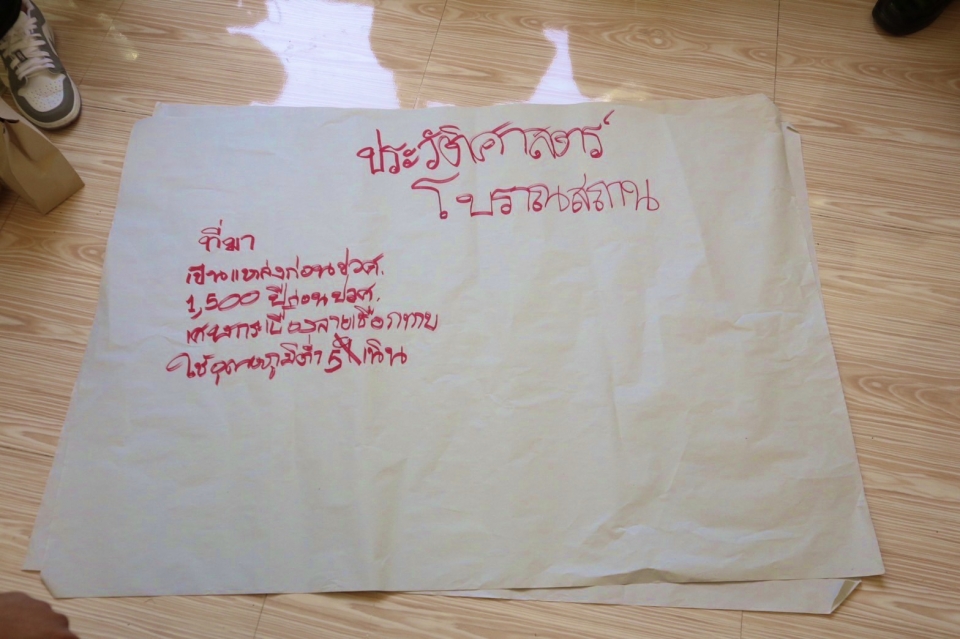 ประวัติศาสตร์
โบราณสถาน
ที่มา
เป็นแหล่งก่อนปวศ.
1,500 ปีก่อนปวศ.
เศษกระเบื้องลายเชือกทาบ
ใช้อุณหภูมิต่ำ